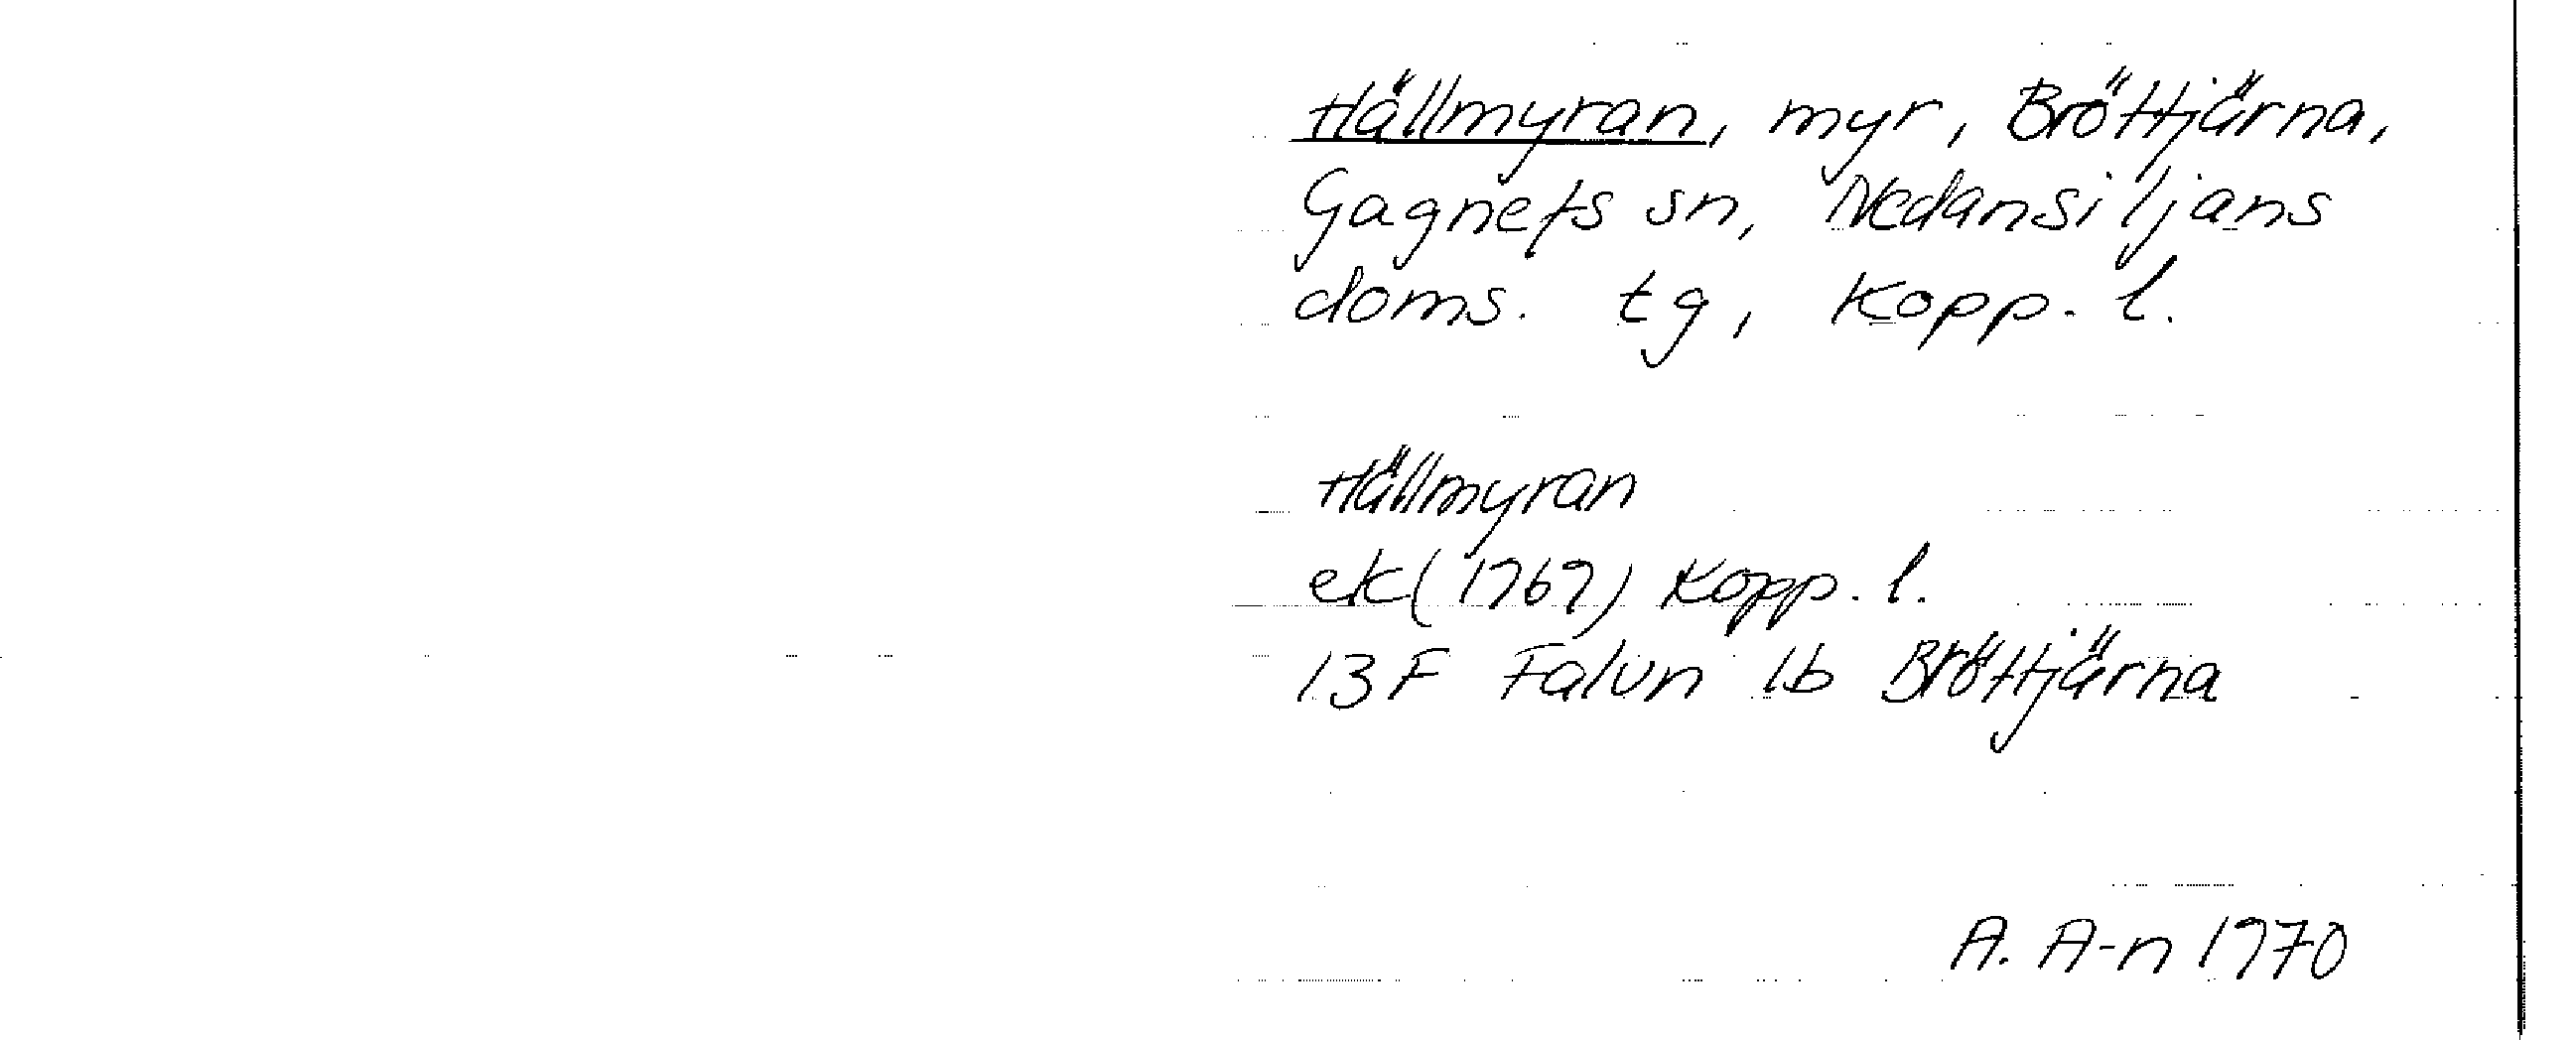 Hällmyran, myr, Bröttjärna,
Gagnefs sn, Nedansiljans
doms. tg, Kopp. l.
Hällmyran
ek (1967) Kopp. l.
13F Falun 1b Bröttjärna
A. A-n 1970